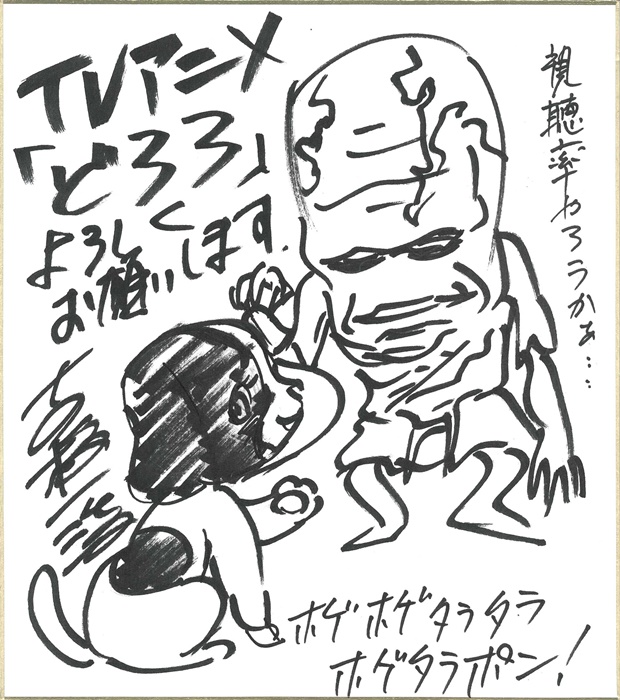 TVアニメ
「どろろ」
よろしく
お願いします.
視聴率わろうかぁ…
ホゲホゲタラタラ
ホゲタラポン!